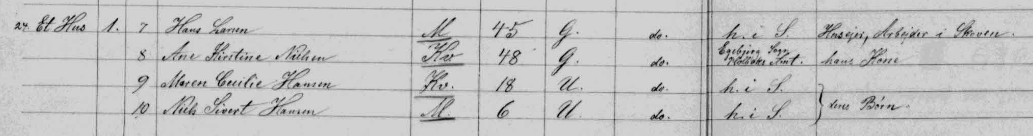 24. Et Hus 1. 7 Hans Larsen M 45 G. do. h. i S. Husejer, Arbejder i Skoven.
8 Ane Kirstine Nielsen Kv 48 G. do. Egebjerg Sogn Holbæk Amt. hans Kone
9 Maren Cecilie Hansen Kv. 18 U. do. h. i S.
10 Niels Sivert Hansen M. 6 U. do. h. i S. } deres Børn.